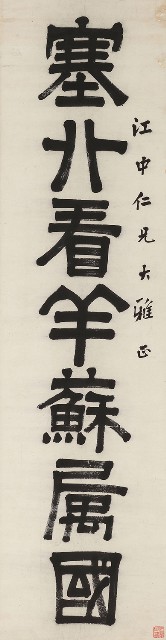 江中仁兄大雅正
塞北看羊蘇属國